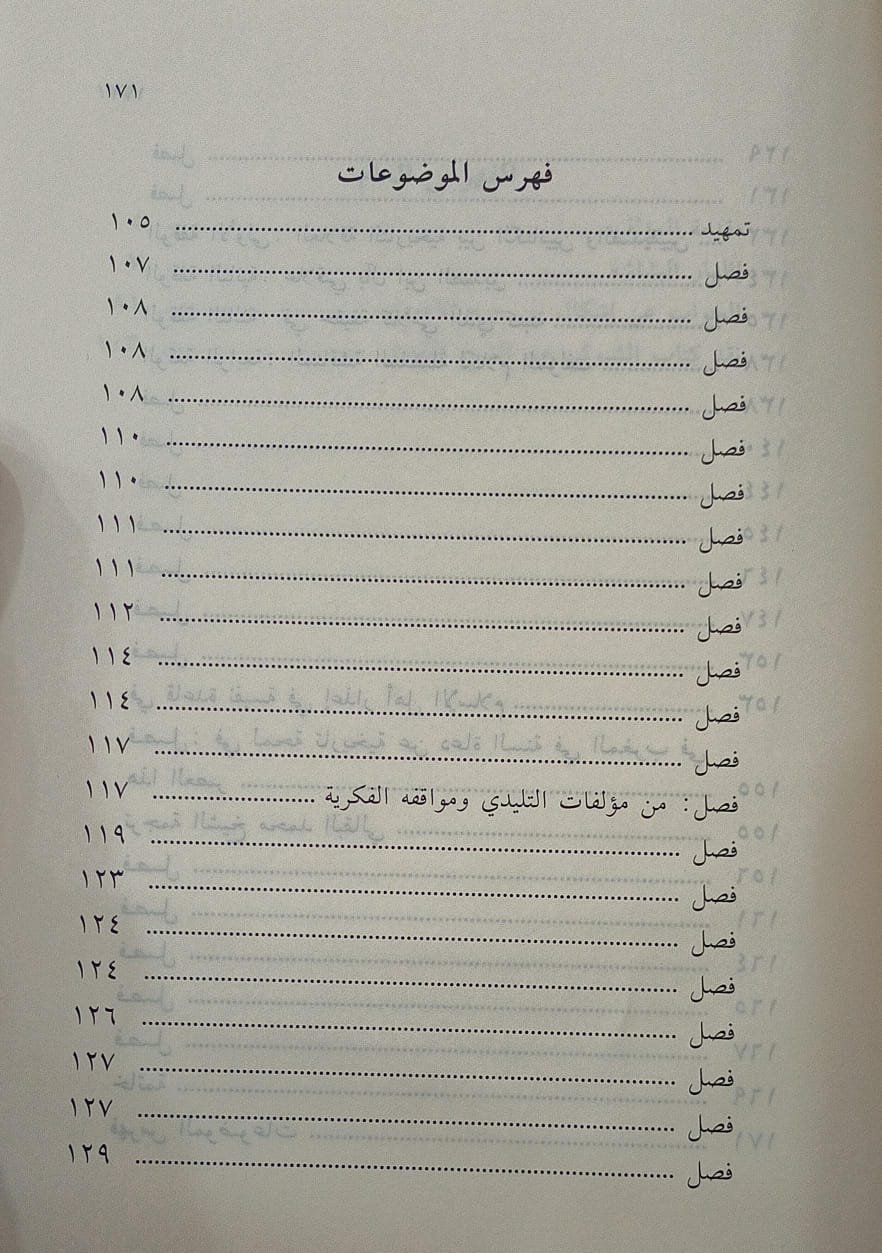 ١٧١
فهرس الموضوعات
تمهيد ........................ ١٠٥
فصل ........................ ١٠٧
فصل ........................ ١٠٨
فصل ........................ ١٠٨
فصل ........................ ١٠٨
فصل ........................ ١١٠
فصل ........................ ١١٠
فصل ........................ ١١١
فصل ........................ ١١١
فصل ........................ ١١٢
فصل ........................ ١١٤
فصل ........................ ١١٤
فصل ........................ ١١٧
فصل: من مؤلفات التليدي ومواقفه الفكرية ............ ١١٧
فصل ........................ ١١٩
فصل ........................ ١٢٣
فصل ........................ ١٢٤
فصل ........................ ١٢٤
فصل ........................ ١٢٦
فصل ........................ ١٢٧
فصل ........................ ١٢٧
فصل ........................ ١٢٩